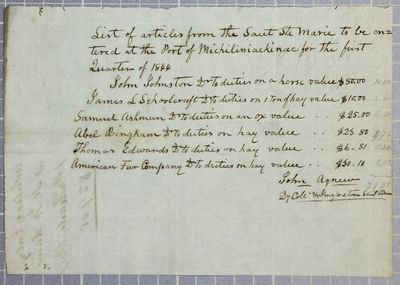 List of articles from the Saut Ste Marie to be en-
tered at the Port of Michiliniackinac for the first
Quarter of 1844
John Johnston Dr to duties on a horse value $50.00
James L Schoolcraft Dr to duties on 1 ton of hay value $10.00
Samuel Ashmun Dr to duties on an ox value .. $25.00
Abel Bingham Dr to duties on hay value .. $25.80
Thomas Edwards Dr to duties on hay value .. $6.51
American Fur Company Dr to duties on hay value .. $30.10
John Agnew
Dy Colr & Inspector Saut